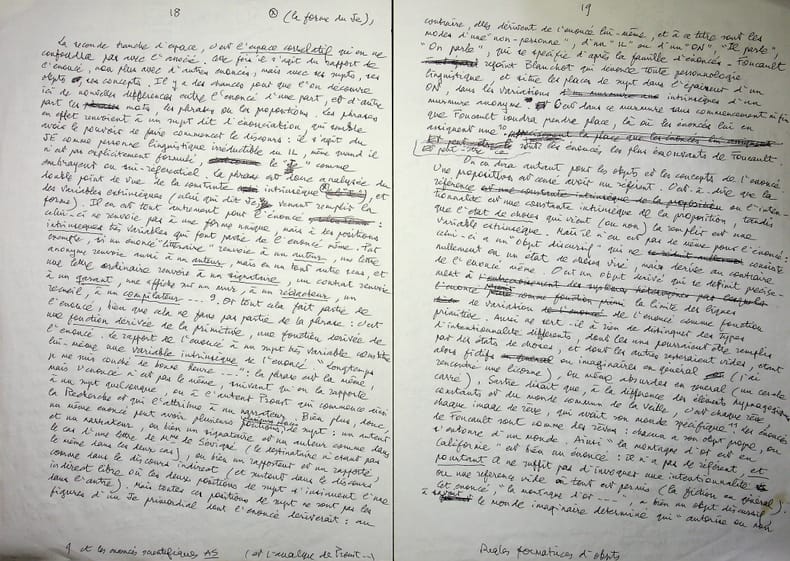 18
(la forme du Je),
La seconde tranche d'espace, c'est l'espace corrélatif qu'on ne
confondra pas avec l'associé. Cette fois il s'agit du rapport de
l'énoncé, non plus avec d'autres énoncés, mais avec ses sujets, ses
objets, ses concepts. Il y a des chances pour que l'on découvre
ici de nouvelles différences entre l'énoncé d'une part, et d'autre
part les mots, les phrases ou les propositions. Les phrases
en effet renvoient à un sujet dit d'énonciation, qui semble
avoir le pouvoir de faire commencer le discours : il s'agit du
JE comme personne linguistique irréductible au IL, même quand il
n'est pas explicitement formulé, le "Je" comme
embrayeur ou sui-référentiel. La phrase est donc analysée du
double point de vue de la constante intrinsèque et
des variables extrinsèques (celui qui dit Je venant remplir la
forme). Il en est tout autrement pour l'énoncé :
celui-ci ne renvoie pas à une forme unique, mais à des positions
intrinsèques très variables qui font partie de l'énoncé même. Par
exemple, si un énoncé "littéraire" renvoie à un auteur, une lettre
anonyme renvoie aussi à un auteur, mais en un tout autre sens, et
une lettre ordinaire renvoie à un signataire, un contrat renvoie
à un garant, une affiche sur un mur, à un rédacteur, un
recueil, à un compilateur .... Or tout cela fait partie de
l'énoncé, bien que cela ne fasse pas partie de la phrase : c'est
une fonction dérivée de la primitive, une fonction dérivée de
l'énoncé. Le rapport de l'énoncé à un sujet très variable constitue
lui-même une variable intrinsèque de l'énoncé. "Longtemps
je me suis couché de bonne heure ...." : la phrase est la même,
mais l'énoncé n'est pas le même, suivant qu'on la rapporte
à un sujet quelconque ou à l'auteur Proust qui commence ainsi
la Recherche et qui l'attribue à un narrateur. Bien plus, donc,
un même énoncé peut avoir plusieurs positions, de sujet : un auteur
et un narrateur, ou bien un signataire et un auteur comme dans
le cas d'une lettre de Mme de Sévigné (le destinataire n'étant pas
le même dans les deux cas), ou bien un rapporteur et un rapporté,
comme dans le discours indirect (et surtout dans le discours
indirect libre où les deux positions de sujet s'insinuent l'une
dans l'autre). Mais toutes ces positions de sujet ne sont pas les
figures d'un Je primordial dont l'énoncé dériverait : au
et les énoncés scientifiques AS (et l'analyse de Proust ...)
19
contraire, elles dérivent de l'énoncé lui-même, et à ce titre sont les
modes d'une "non-personne", d'un "IL" ou d'un "ON", "Il parle",
"On parle", qui se spécifie d'après la famille d'énoncés. Foucault
rejoint Blanchot qui dénonce toute personnologie
linguistique, et situe les places de sujet dans l'épaisseur d'un
ON, dans les variations intrinsèques d'un
murmure anonyme. C'est dans ce murmure sans commencement ni fin
que Foucault voudra prendre place, là où les énoncés lui en
assignent une
sont les énoncés les plus émouvants de Foucault.
On en dira autant pour les objets et les concepts de l'énoncé.
Une proposition est censée avoir un référent. C'est-à-dire que la
référence ou l'intentionnalité
est une constante intrinsèque de la proposition, tandis
que l'état de choses qui vient (ou non) la remplir est une
variable extrinsèque. Mais il n'en est pas de même pour l'énoncé :
celui-ci a un "objet discursif" qui ne consiste
nullement en un état de choses visé, mais dérive au contraire
de l'énoncé même. C'est un objet dérivé qui se définit précisément
à la limite des lignes
de variation de l'énoncé comme fonction
primitive. Aussi ne sert-il à rien de distinguer des types
d'intentionnalité différents, dont les uns pourraient être remplis
par des états de choses, et dont les autres resteraient vides, étant
alors fictifs ou imaginaires en général (j'ai
rencontré une licorne), ou même absurdes en général (un cercle
carré). Sartre disait que, à la différence des éléments hypnagogiques
constants et du monde commun de la veille, c'est chaque rêve,
chaque image de rêve, qui avait son monde spécifique. Les énoncés
de Foucault sont comme des rêves : chacun a son objet propre, ou
s'entoure d'un monde. Ainsi "la montagne d'or est en
Californie" est bien un énoncé : il n'a pas de référent, et
pourtant il ne suffit pas d'invoquer une intentionnalité
ou une référence vide où tout est permis (la fiction en général).
Cet énoncé, "la montagne d'or ....", a bien un objet discursif
à savoir le monde imaginaire déterminé qui "autorise ou non
Règles formatrices d'objets